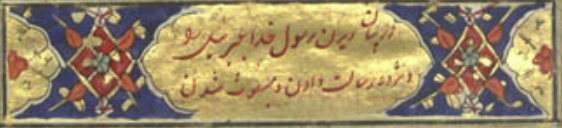 در بیان دیدن رسول خدا جبرئیل را
و مژده رسالت دادن و مبعوث شدن